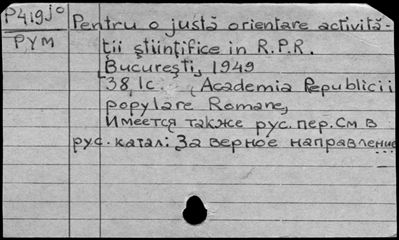 P419jo Pentru o justă orientare activită-
РУМ ţii ştiinţifice in R.P.R.
Bucureşti, 1949
38, 1c. (Academia Republicii
populare Romane,
Имеется также рус. пер. См в
рус. катал: За верное направление...